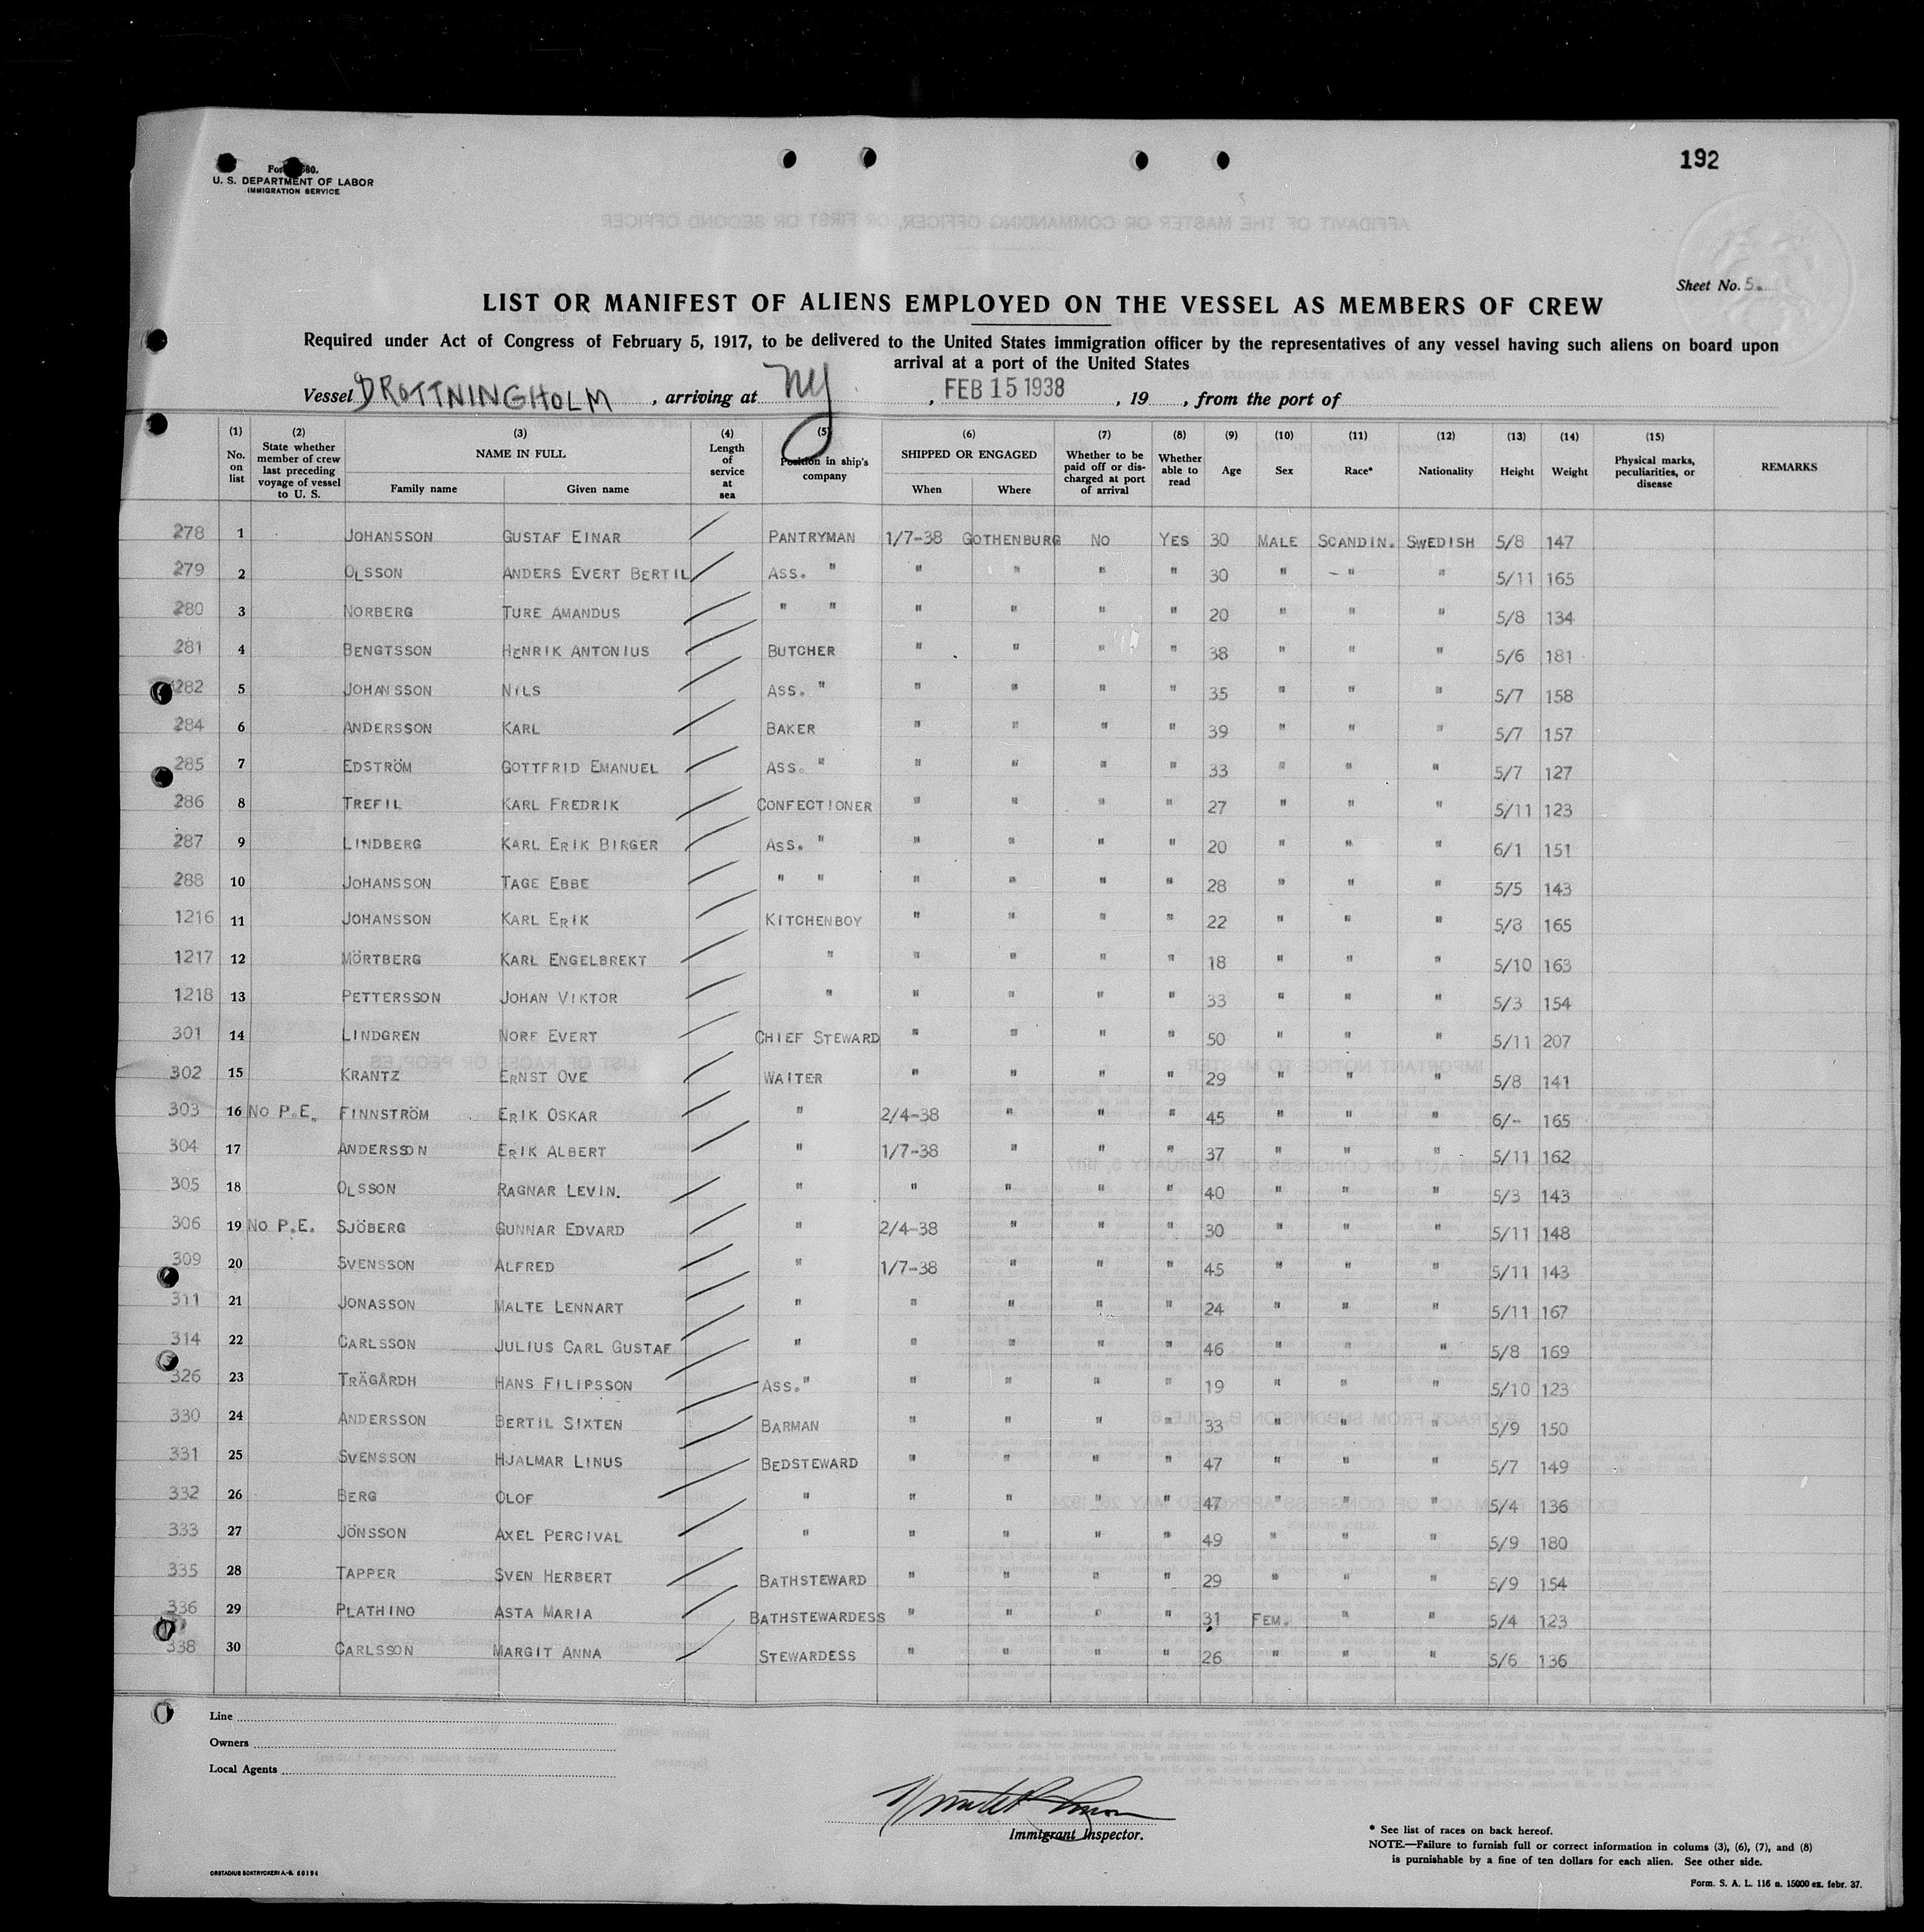 192
U. S. DEPARTMENT OF LABOR
IMMIGRATION SERVICE
Sheet No. 5.
LIST OR MANIFEST OF ALIENS EMPLOYED ON THE VESSEL AS MEMBERS OF CREW
Required under Act of Congress of February 5, 1917, to be delivered to the United States immigration officer by the representatives of any vessel having such aliens on board upon
arrival at a port of the United States
Vessel DROTTNINGHOLM , arriving at NY , FEB 15 1938 , 19 , from the port of
(1) No. on list (2) State whether member of crew last preceding voyage of vessel to U. S. (3) NAME IN FULL Family name Given name (4) Length of service at sea (5) Position in ship's company (6) SHIPPED OR ENGAGED When Where (7) Whether to be paid off or discharged at port of arrival (8) Whether able to read (9) Age (10) Sex (11) Race* (12) Nationality (13) Height (14) Weight (15) Physical marks, peculiarities, or disease REMARKS
278 1 JOHANSSON GUSTAF EINAR PANTRYMAN 1/7-38 GOTHENBURG NO YES 30 MALE SCANDIN. SWEDISH 5/8 147
279 2 OLSSON ANDERS EVERT BERTIL ASS. " " " " " 30 " " " 5/11 165
280 3 NORBERG TURE AMANDUS " " " " " " 20 " " " 5/8 134
281 4 BENGTSSON HENRIK ANTONIUS BUTCHER " " " " 38 " " " 5/6 181
282 5 JOHANSSON NILS ASS. " " " " " 35 " " " 5/7 158
284 6 ANDERSSON KARL BAKER " " " " 39 " " " 5/7 157
285 7 EDSTRÖM GOTTFRID EMANUEL ASS. " " " " " 33 " " " 5/7 127
286 8 TREFIL KARL FREDRIK CONFECTIONER " " " " 27 " " " 5/11 123
287 9 LINDBERG KARL ERIK BIRGER ASS. " " " " " 20 " " " 6/1 151
288 10 JOHANSSON TAGE EBBE " " " " " " 28 " " " 5/5 143
1216 11 JOHANSSON KARL ERIK KITCHENBOY " " " " 22 " " " 5/8 165
1217 12 MÖRTBERG KARL ENGELBREKT " " " " " 18 " " " 5/10 163
1218 13 PETTERSSON JOHAN VIKTOR " " " " " 33 " " " 5/3 154
301 14 LINDGREN NORE EVERT CHIEF STEWARD " " " " 50 " " " 5/11 207
302 15 KRANTZ ERNST OVE WAITER " " " " 29 " " " 5/8 141
303 16 NO P.E. FINNSTRÖM ERIK OSKAR " 2/4-38 " " " 45 " " " 6/- 165
304 17 ANDERSSON ERIK ALBERT " 1/7-38 " " " 37 " " " 5/11 162
305 18 OLSSON RAGNAR LEVIN. " " " " " 40 " " " 5/3 143
306 19 NO P.E. SJÖBERG GUNNAR EDVARD " 2/4-38 " " " 30 " " " 5/11 148
309 20 SVENSSON ALFRED " 1/7-38 " " " 45 " " " 5/11 143
311 21 JONASSON MALTE LENNART " " " " " 24 " " " 5/11 167
314 22 CARLSSON JULIUS CARL GUSTAF " " " " " 46 " " " 5/8 169
326 23 TRÄGÅRDH HANS FILIPSSON ASS. " " " " " 19 " " " 5/10 123
330 24 ANDERSSON BERTIL SIXTEN BARMAN " " " " 33 " " " 5/9 150
331 25 SVENSSON HJALMAR LINUS BEDSTEWARD " " " " 47 " " " 5/7 149
332 26 BERG OLOF " " " " " 47 " " " 5/4 136
333 27 JÖNSSON AXEL PERCIVAL " " " " " 49 " " " 5/9 180
335 28 TAPPER SVEN HERBERT BATHSTEWARD " " " " 29 " " " 5/9 154
336 29 PLATHINO ASTA MARIA BATHSTEWARDESS " " " " 31 FEM. " " 5/4 123
338 30 CARLSSON MARGIT ANNA STEWARDESS " " " " 26 " " " 5/6 136
Line
Owners
Local Agents
Immigrant Inspector.
* See list of races on back hereof.
NOTE.—Failure to furnish full or correct information in colums (3), (6), (7), and (8)
is punishable by a fine of ten dollars for each alien. See other side.
Form. S. A. L. 116 n. 15000 ex. febr. 37.